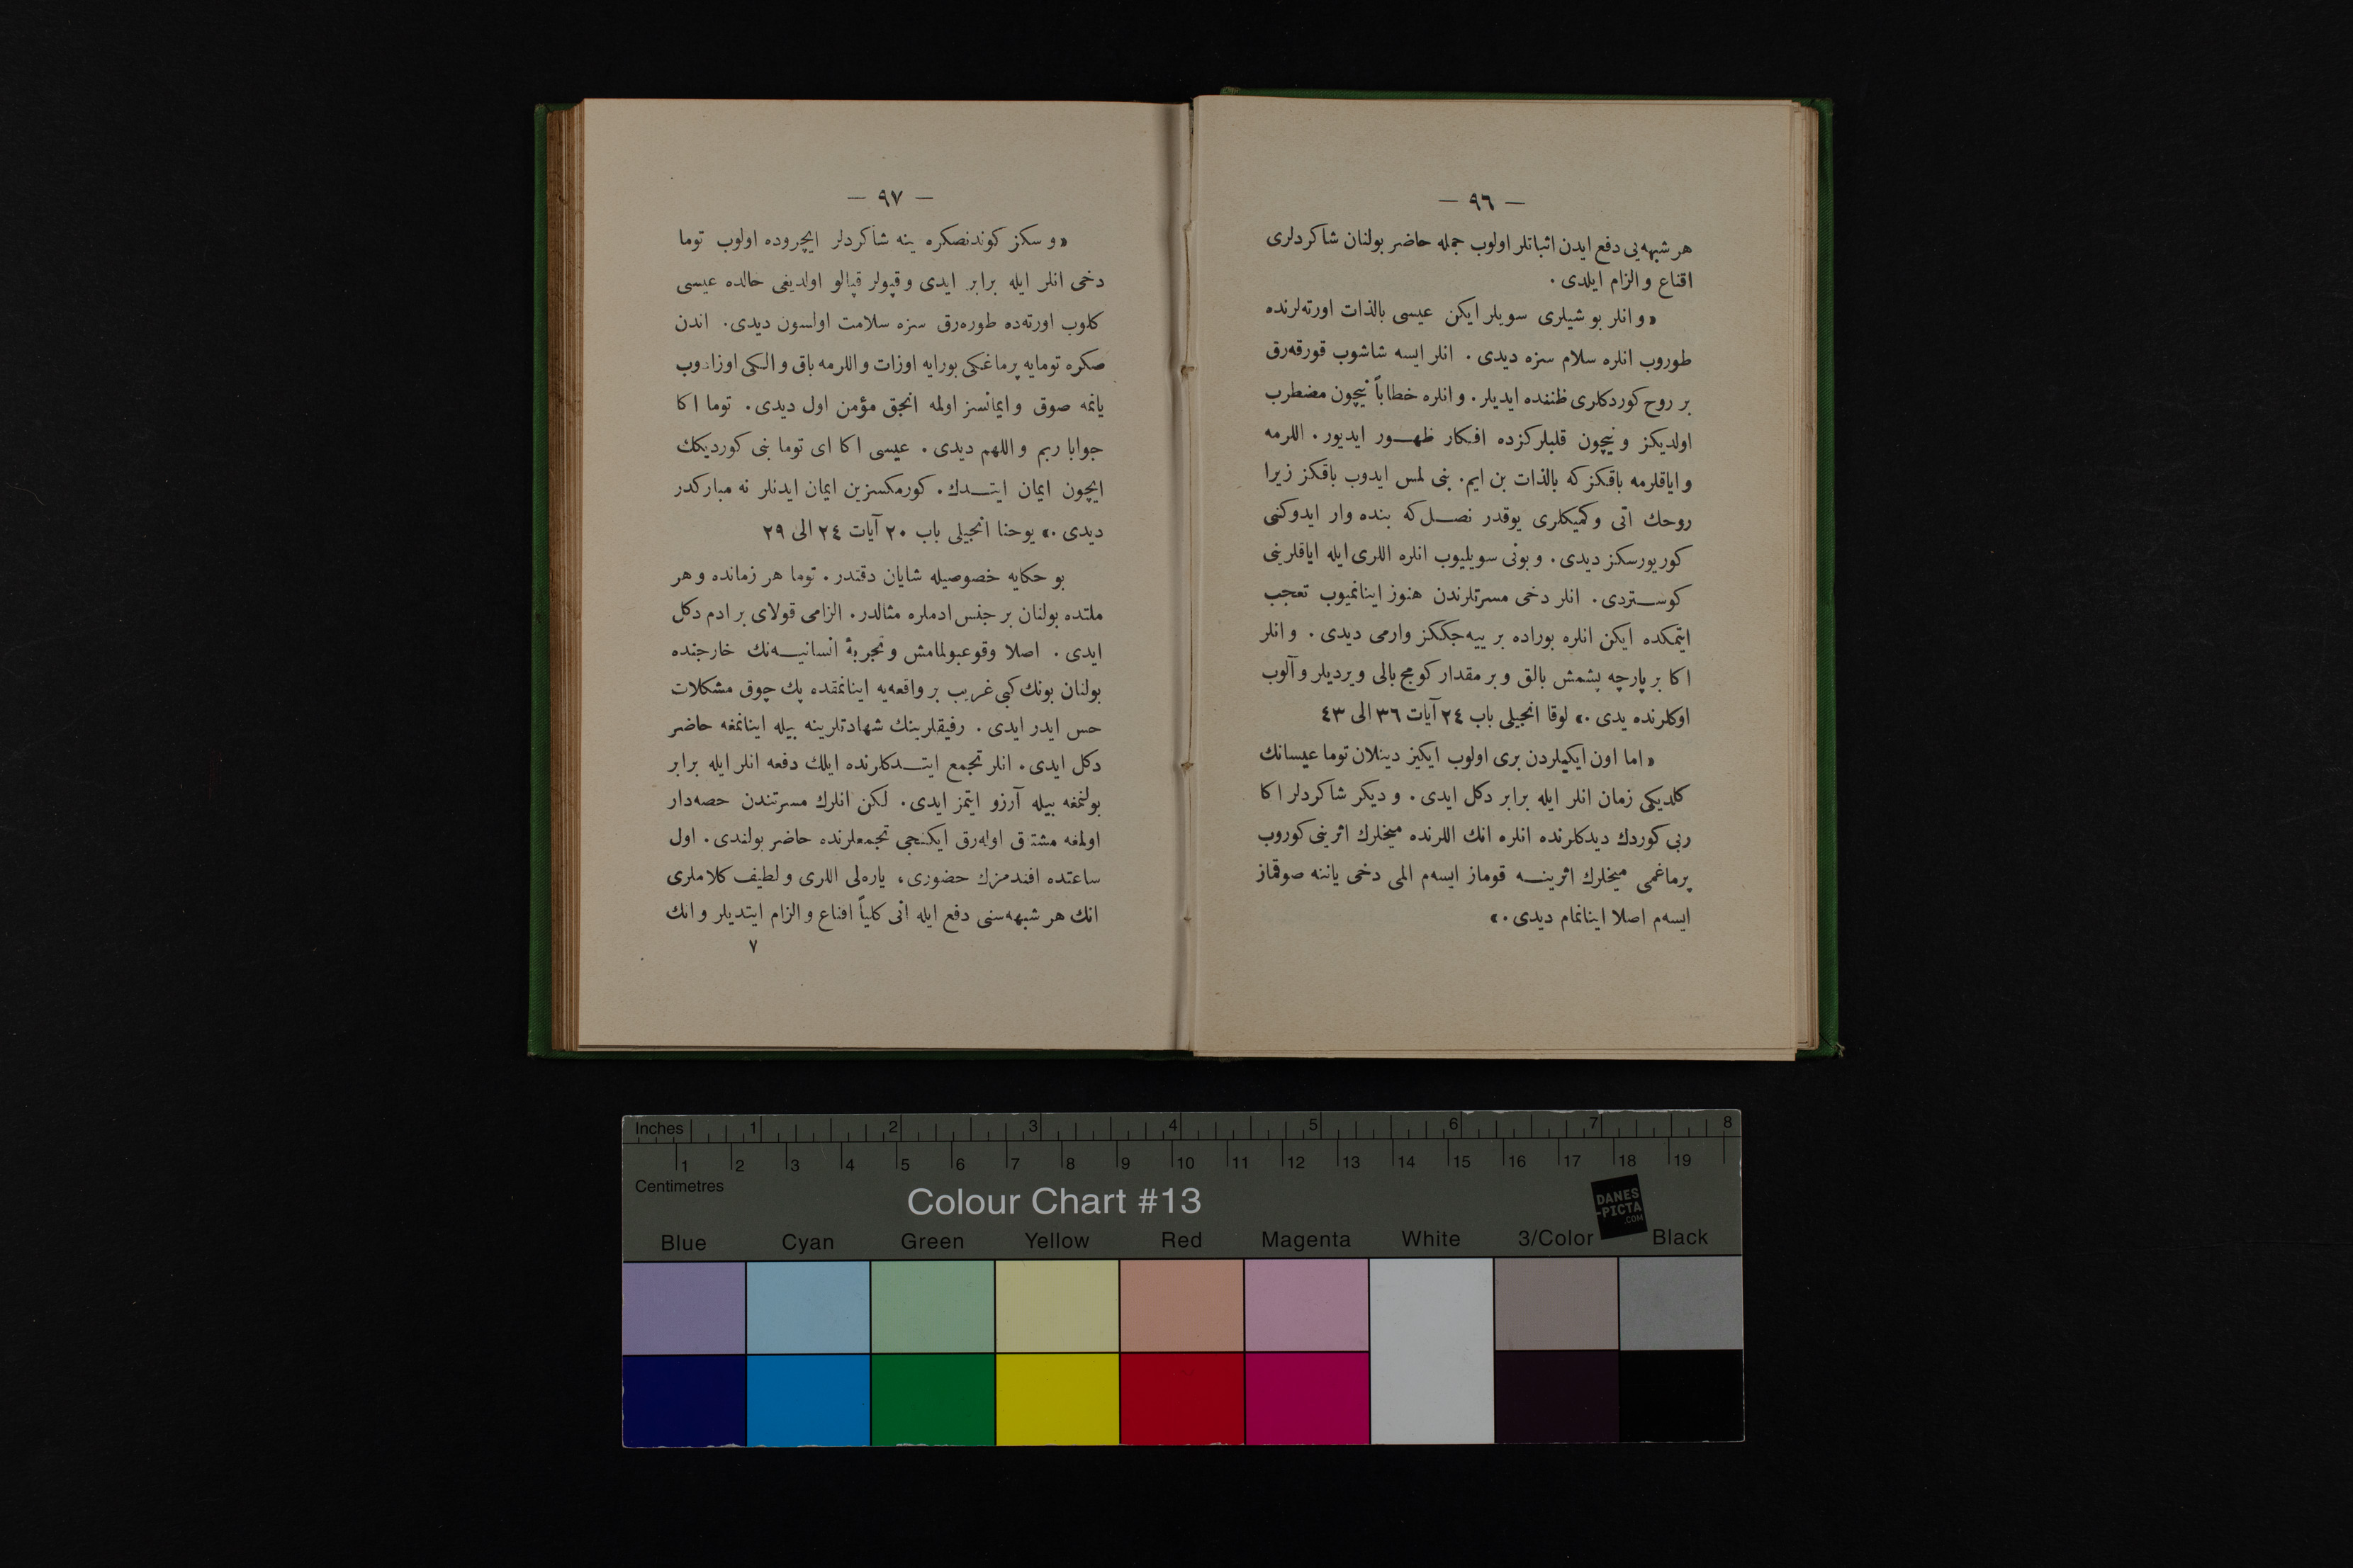 — ٩٦ —
هر شبهه‌یی دفع ایدن اثباتلر اولوب جمله حاضر بولنان شاكردلری
اقناع و الزام ایلدی .
« و انلر بو شیلری سویلر ایكن عیسی بالذات اورته‌لرنده
طوروب انلره سلام سزه دیدی . انلر ایسه شاشوب قورقه‌رق
بر روح كوردكلری ظننده ایدیلر . و انلره خطاباً نیچون مضطرب
اولدیكز و نیچون قلبلركزده افكار ظهـور ایدیور . اللرمه
و ایاقلرمه باقكز كه بالذات بن ایم . بنی لمس ایدوب باقكز زیرا
روحك اتی و كمیكلری یوقدر نصـل كه بنده وار ایدوكنی
كوریورسكز دیدی . و بونی سویلیوب انلره اللری ایله ایاقلرینی
كوسـتردی . انلر دخی مسرتلرندن هنوز اینانمیوب تعجب
ایتمكده ایكن انلره بوراده بر ییه‌جككز وارمی دیدی . و انلر
اكا بر پارچه پشمش بالق و بر مقدار كومج بالی ویردیلر و آلوب
اوكلرنده یدی . » لوقا انجیلی باب ٢٤ آیات ٣٦ الی ٤٣
« اما اون ایكیلردن بری اولوب ایكیز دینلان توما عیسانك
كلدیكی زمان انلر ایله برابر دكل ایدی . و دیكر شاكردلر اكا
ربی كوردك دیدكلرنده انلره انك اللرنده میخلرك اثرینی كوروب
پرماغمی میخلرك اثرینـه قوماز ایسه‌م المی دخی یاننه صوقماز
ایسه‌م اصلا اینانمام دیدی . »
— ٩٧ —
« و سكز كوندنصكره ینه شاكردلر ایچروده اولوب توما
دخی انلر ایله برابر ایدی و قپولر قپالو اولدیغی حالده عیسی
كلوب اورته‌ده طوره‌رق سزه سلامت اولسون دیدی . اندن
صكره تومایه پرماغكی بورایه اوزات و اللرمه باق و الكی اوزادوب
یانمه صوق و ایمانسز اولمه انجق مؤمن اول دیدی . توما اكا
جوابا ربم و اللهم دیدی . عیسی اكا ای توما بنی كوردیكك
ایچون ایمان ایتـدك . كورمكسزین ایمان ایدنلر نه مباركدر
دیدی . » یوحنا انجیلی باب ٢٠ آیات ٢٤ الی ٢٩
بو حكایه خصوصیله شایان دقتدر . توما هر زمانده و هر
ملتده بولنان بر جنس ادملره مثالدر . الزامی قولای بر ادم دكل
ایدی . اصلا وقوعبولمامش و تجربهٔ انسانیـه‌نك خارجنده
بولنان بونك كبی غریب بر واقعه‌یه اینانمقده پك چوق مشكلات
حس ایدر ایدی . رفیقلرینك شهادتلرینه بیله اینانمغه حاضر
دكل ایدی . انلر تجمع ایتـدكلرنده ایلك دفعه انلر ایله برابر
بولنمغه بیله آرزو ایتمز ایدی . لكن انلرك مسرتندن حصه‌دار
اولمغه مشتاق اوله‌رق ایكنجی تجمعلرنده حاضر بولندی . اول
ساعتده افندمزك حضوری ، یاره‌لی اللری و لطیف كلاملری
انك هر شبهه‌سنی دفع ایله انی كلیاً اقناع و الزام ایتدیلر و انك
٧
Inches 1 2 3 4 5 6 7 8
1 2 3 4 5 6 7 8 9 10 11 12 13 14 15 16 17 18 19
Centimetres
Colour Chart #13
DANES
-PICTA
.COM
Blue Cyan Green Yellow Red Magenta White 3/Color Black